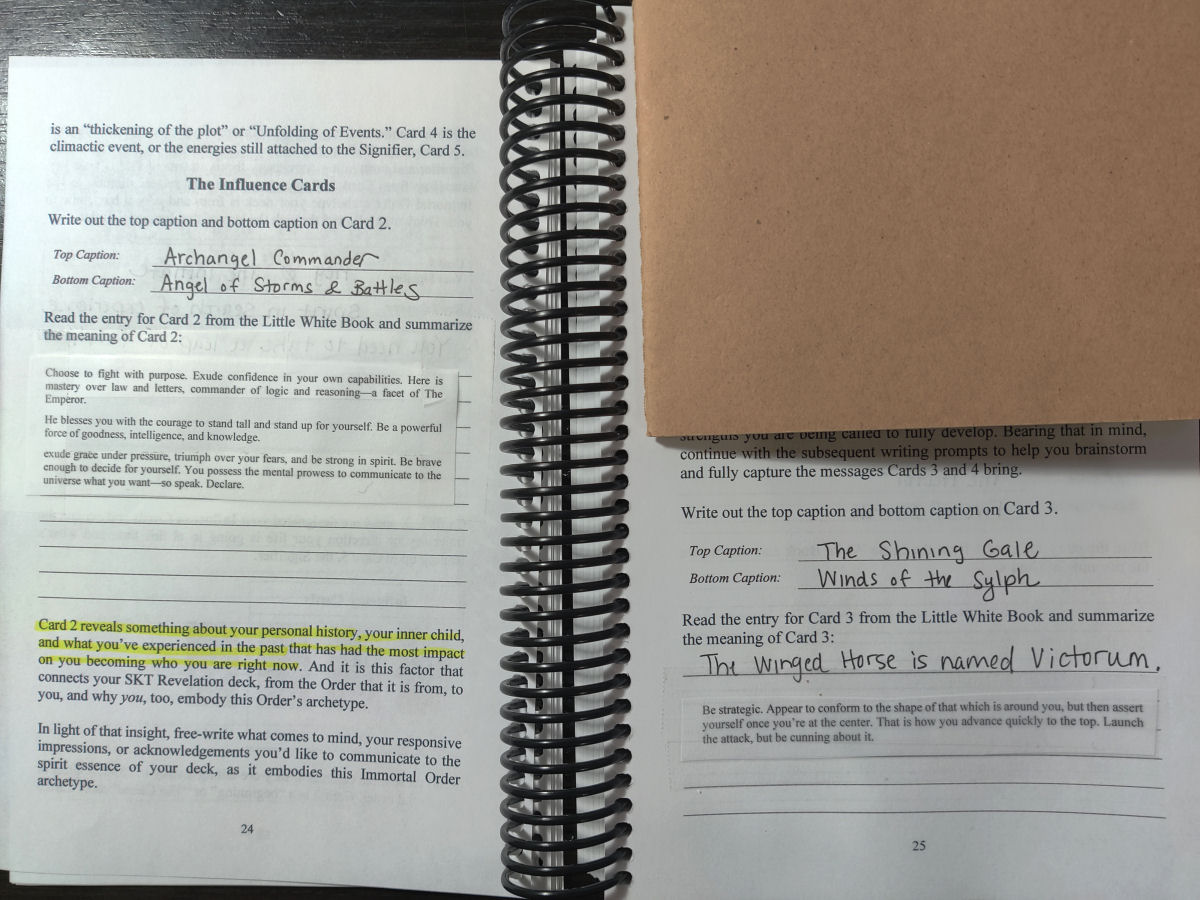 is an “thickening of the plot” or “Unfolding of Events.” Card 4 is the
climactic event, or the energies still attached to the Signifier, Card 5.
The Influence Cards
Write out the top caption and bottom caption on Card 2.
Top Caption: Archangel Commander
Bottom Caption: Angel of Storms & Battles
Read the entry for Card 2 from the Little White Book and summarize
the meaning of Card 2:
Choose to fight with purpose. Exude confidence in your own capabilities. Here is
mastery over law and letters, commander of logic and reasoning—a facet of The
Emperor.
He blesses you with the courage to stand tall and stand up for yourself. Be a powerful
force of goodness, intelligence, and knowledge.
exude grace under pressure, triumph over your fears, and be strong in spirit. Be brave
enough to decide for yourself. You possess the mental prowess to communicate to the
universe what you want—so speak. Declare.
Card 2 reveals something about your personal history, your inner child,
and what you’ve experienced in the past that has had the most impact
on you becoming who you are right now. And it is this factor that
connects your SKT Revelation deck, from the Order that it is from, to
you, and why you, too, embody this Order’s archetype.
In light of that insight, free-write what comes to mind, your responsive
impressions, or acknowledgements you’d like to communicate to the
spirit essence of your deck, as it embodies this Immortal Order
archetype.
24
strengths you are being called to fully develop. Bearing that in mind,
continue with the subsequent writing prompts to help you brainstorm
and fully capture the messages Cards 3 and 4 bring.
Write out the top caption and bottom caption on Card 3.
Top Caption: The Shining Gale
Bottom Caption: Winds of the Sylph
Read the entry for Card 3 from the Little White Book and summarize
the meaning of Card 3:
The Winged Horse is named Victorum.
Be strategic. Appear to conform to the shape of that which is around you, but then assert
yourself once you’re at the center. That is how you advance quickly to the top. Launch
the attack, but be cunning about it.
25